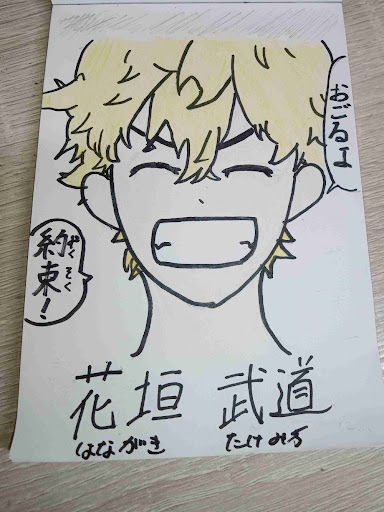 おごるよ
約束!
やくそく
花垣 武道
はながき たけみち